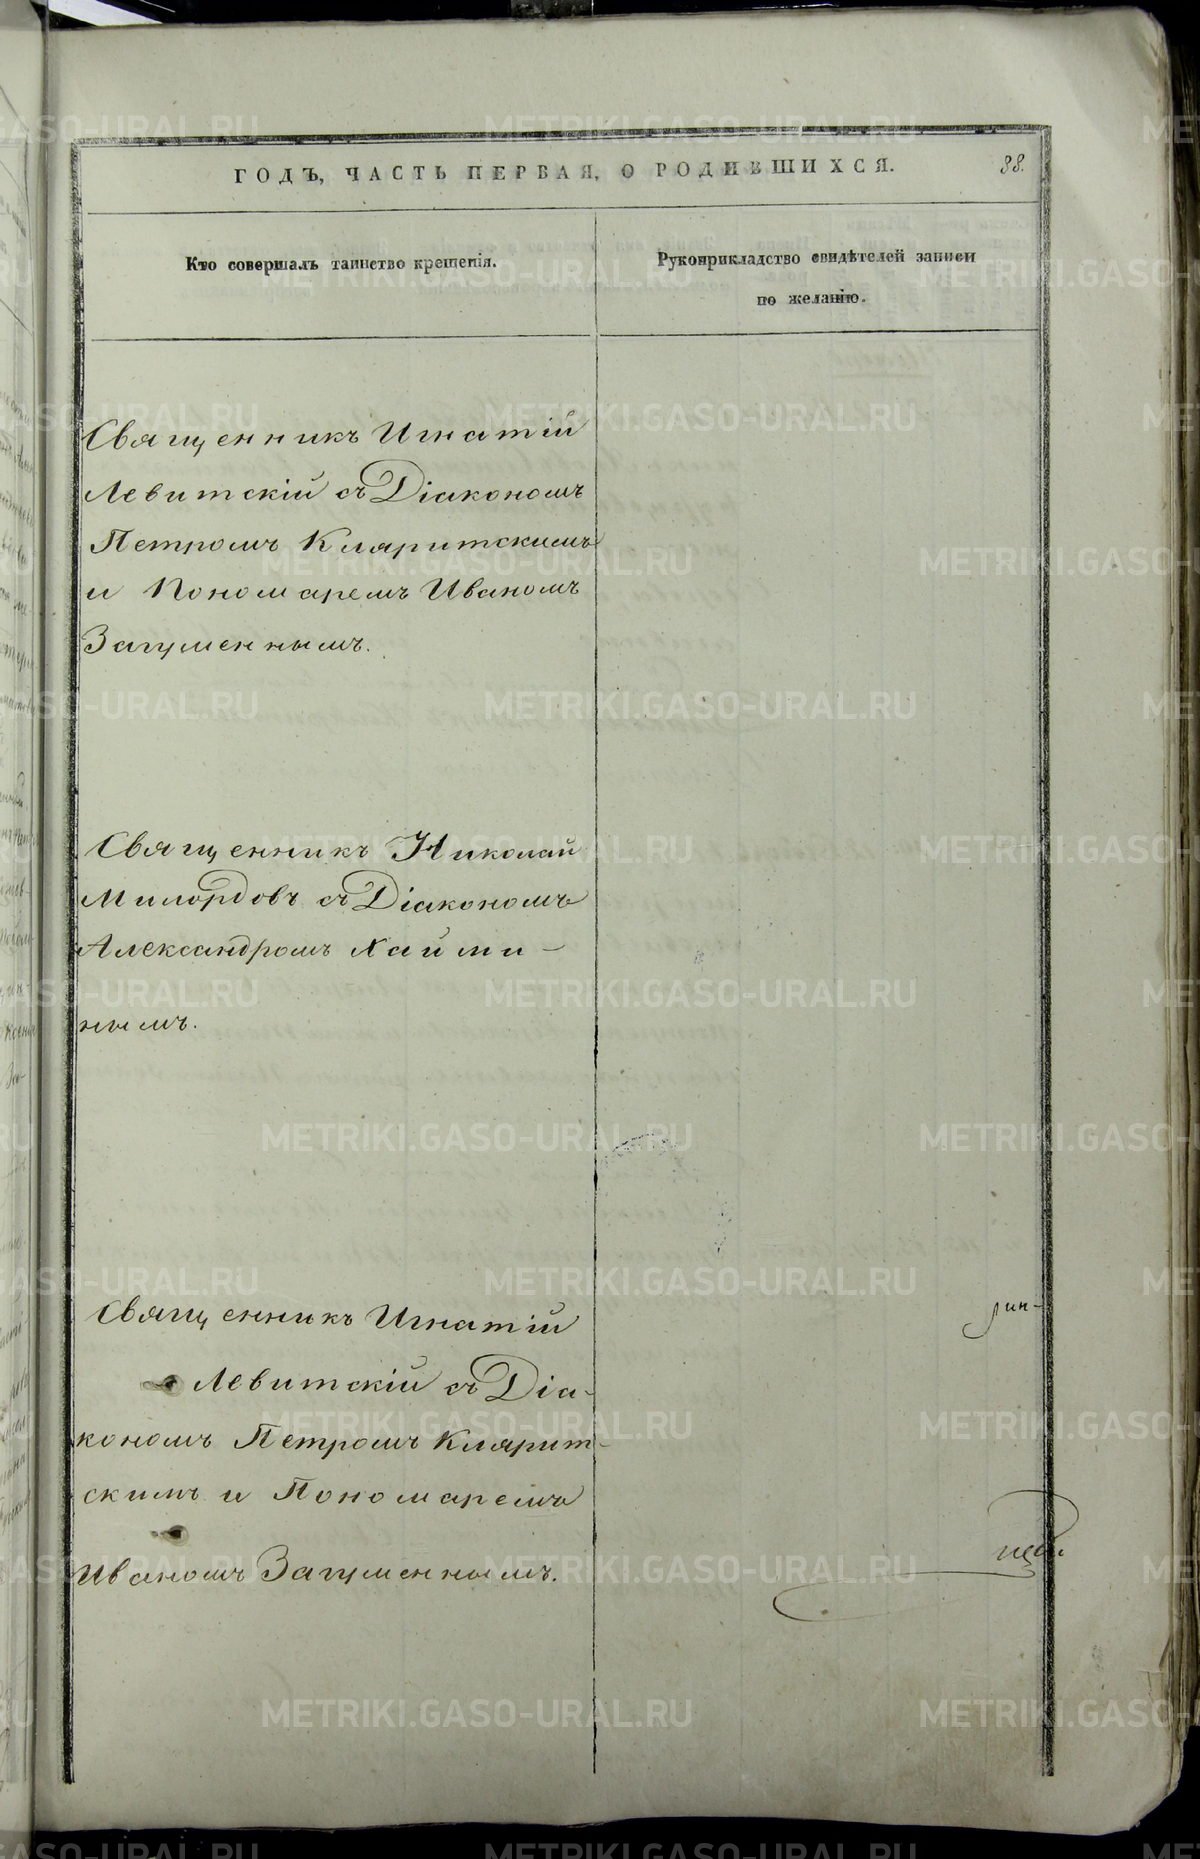 ГОДЪ, ЧАСТЬ ПЕРВАЯ, О РОДИВШИХСЯ.
38.
Кто совершалъ таинство крещенія.
Рукоприкладство свидѣтелей записи
по желанію.
Священникъ Игнатій
Левитскій съ Діакономъ
Петромъ Кляритскимъ
и Пономаремъ Иваномъ
Загуменнымъ.
Священникъ Николай
Милордовъ съ Діакономъ
Александромъ Хайми-
нымъ.
Священникъ Игнатій
Левитскій съ Діа-
кономъ Петромъ Клярит-
скимъ и Пономаремъ
Иваномъ Загуменнымъ.
рин-
METRIKI.GASO-URAL.RU